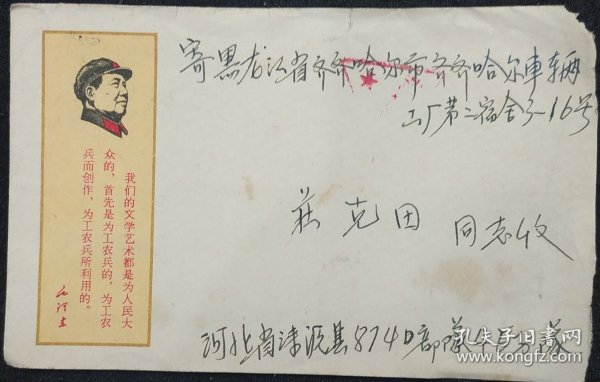 寄黑龙江省齐齐哈尔市齐齐哈尔車辆
工厂第二宿舍3-16号
莊克田 同志收
我们的文学艺术都是为人民大
众的，首先是为工农兵的，为工农
兵而创作，为工农兵所利用的。
毛泽东
河北省涞源县8740部隊
孔夫子旧书网
www.kongfz.com